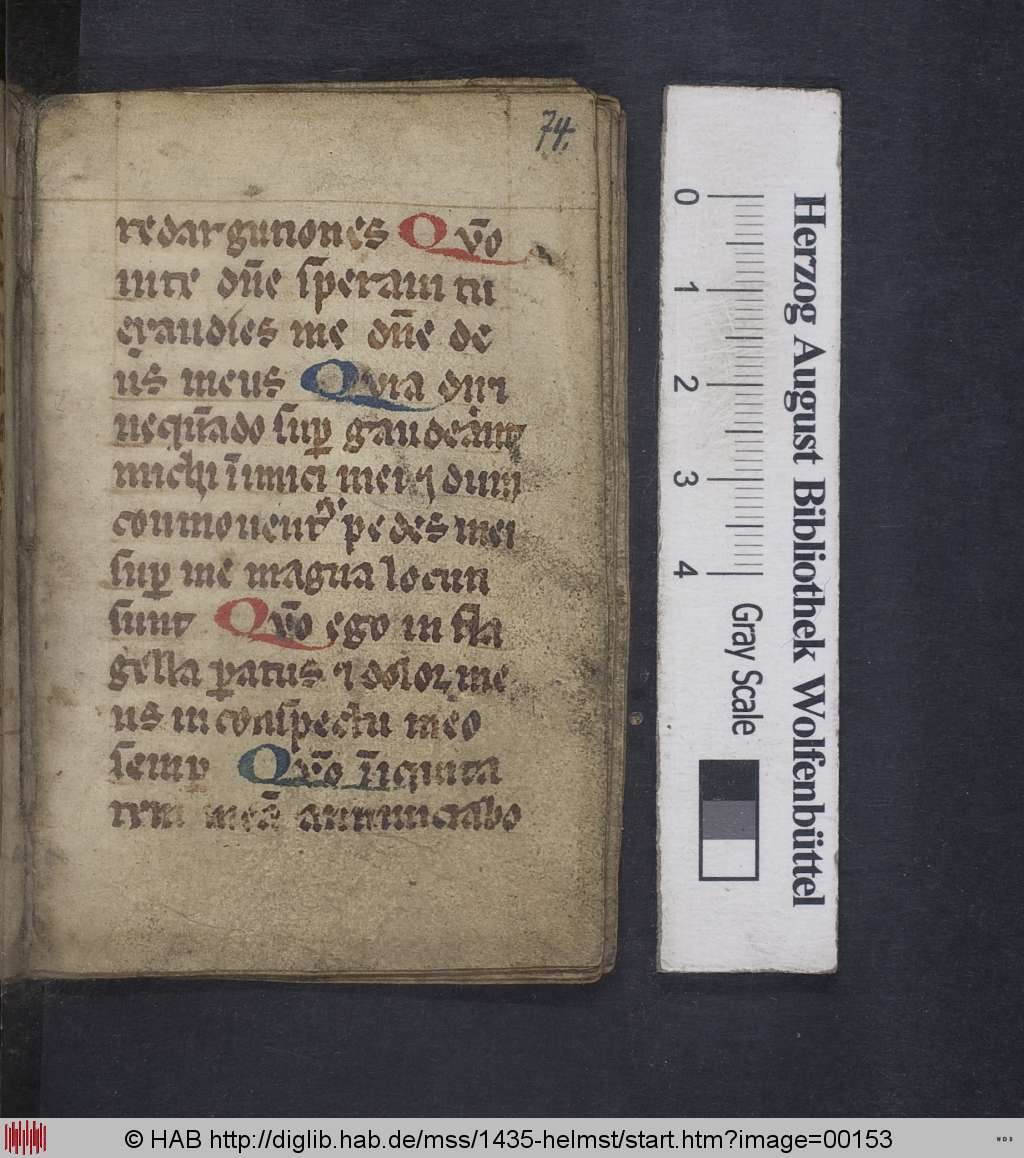 74.
redargutiones Qūo
inte dn̄e speraui tu
exaudies me dn̄e de
us meus Quia dixi
neqn̄ado sup̲ gaudeant
michi īimici mei ⁊ dum
commouent᷑ pedes mei
sup̲ me magna locuti
sunt Qūo ego in fla
gella p̲atus ⁊ dolor me
us in conspectu meo
semp̲ Qūo īiquita
tem meā annunciabo
0 1 2 3 4
Gray Scale
Herzog August Bibliothek Wolfenbüttel
© HAB http://diglib.hab.de/mss/1435-helmst/start.htm?image=00153